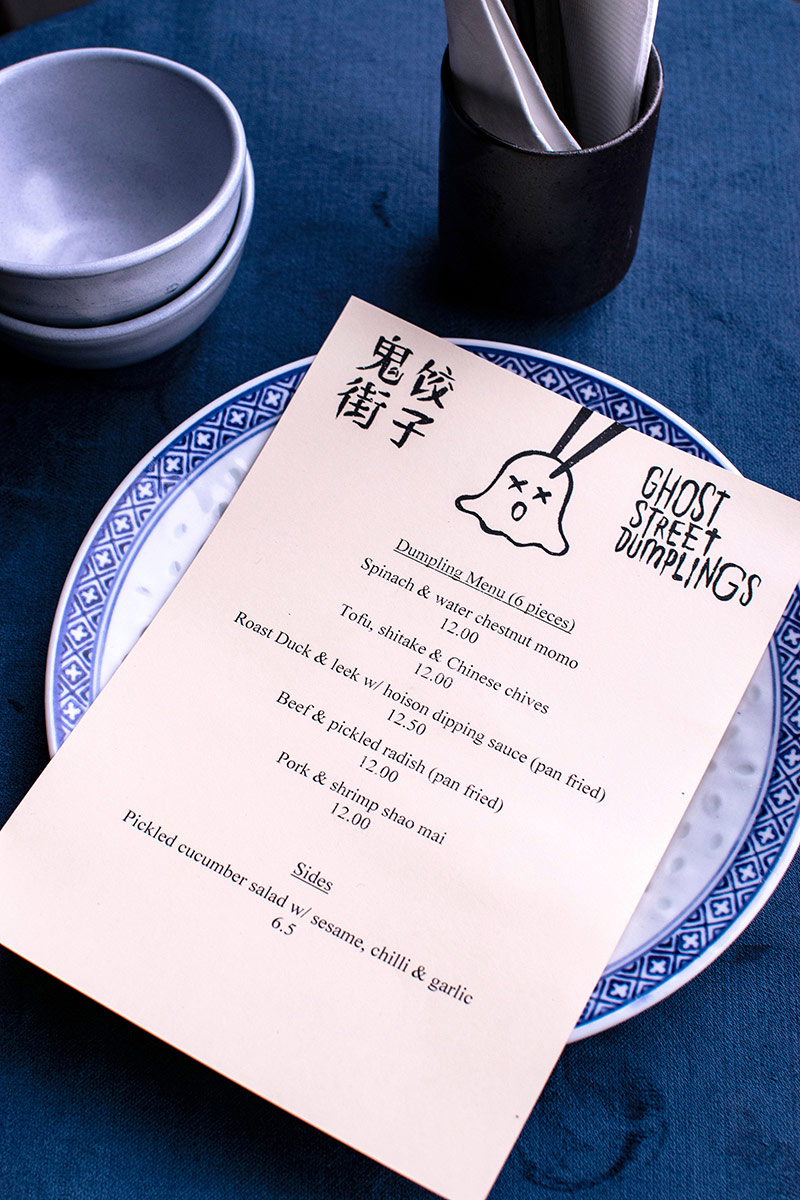 鬼饺
街子
GHOST
STREET
DUMPLINGS
Dumpling Menu (6 pieces)
Spinach & water chestnut momo
12.00
Tofu, shitake & Chinese chives
12.00
Roast Duck & leek w/ hoison dipping sauce (pan fried)
12.50
Beef & pickled radish (pan fried)
12.00
Pork & shrimp shao mai
12.00
Sides
Pickled cucumber salad w/ sesame, chilli & garlic
6.5